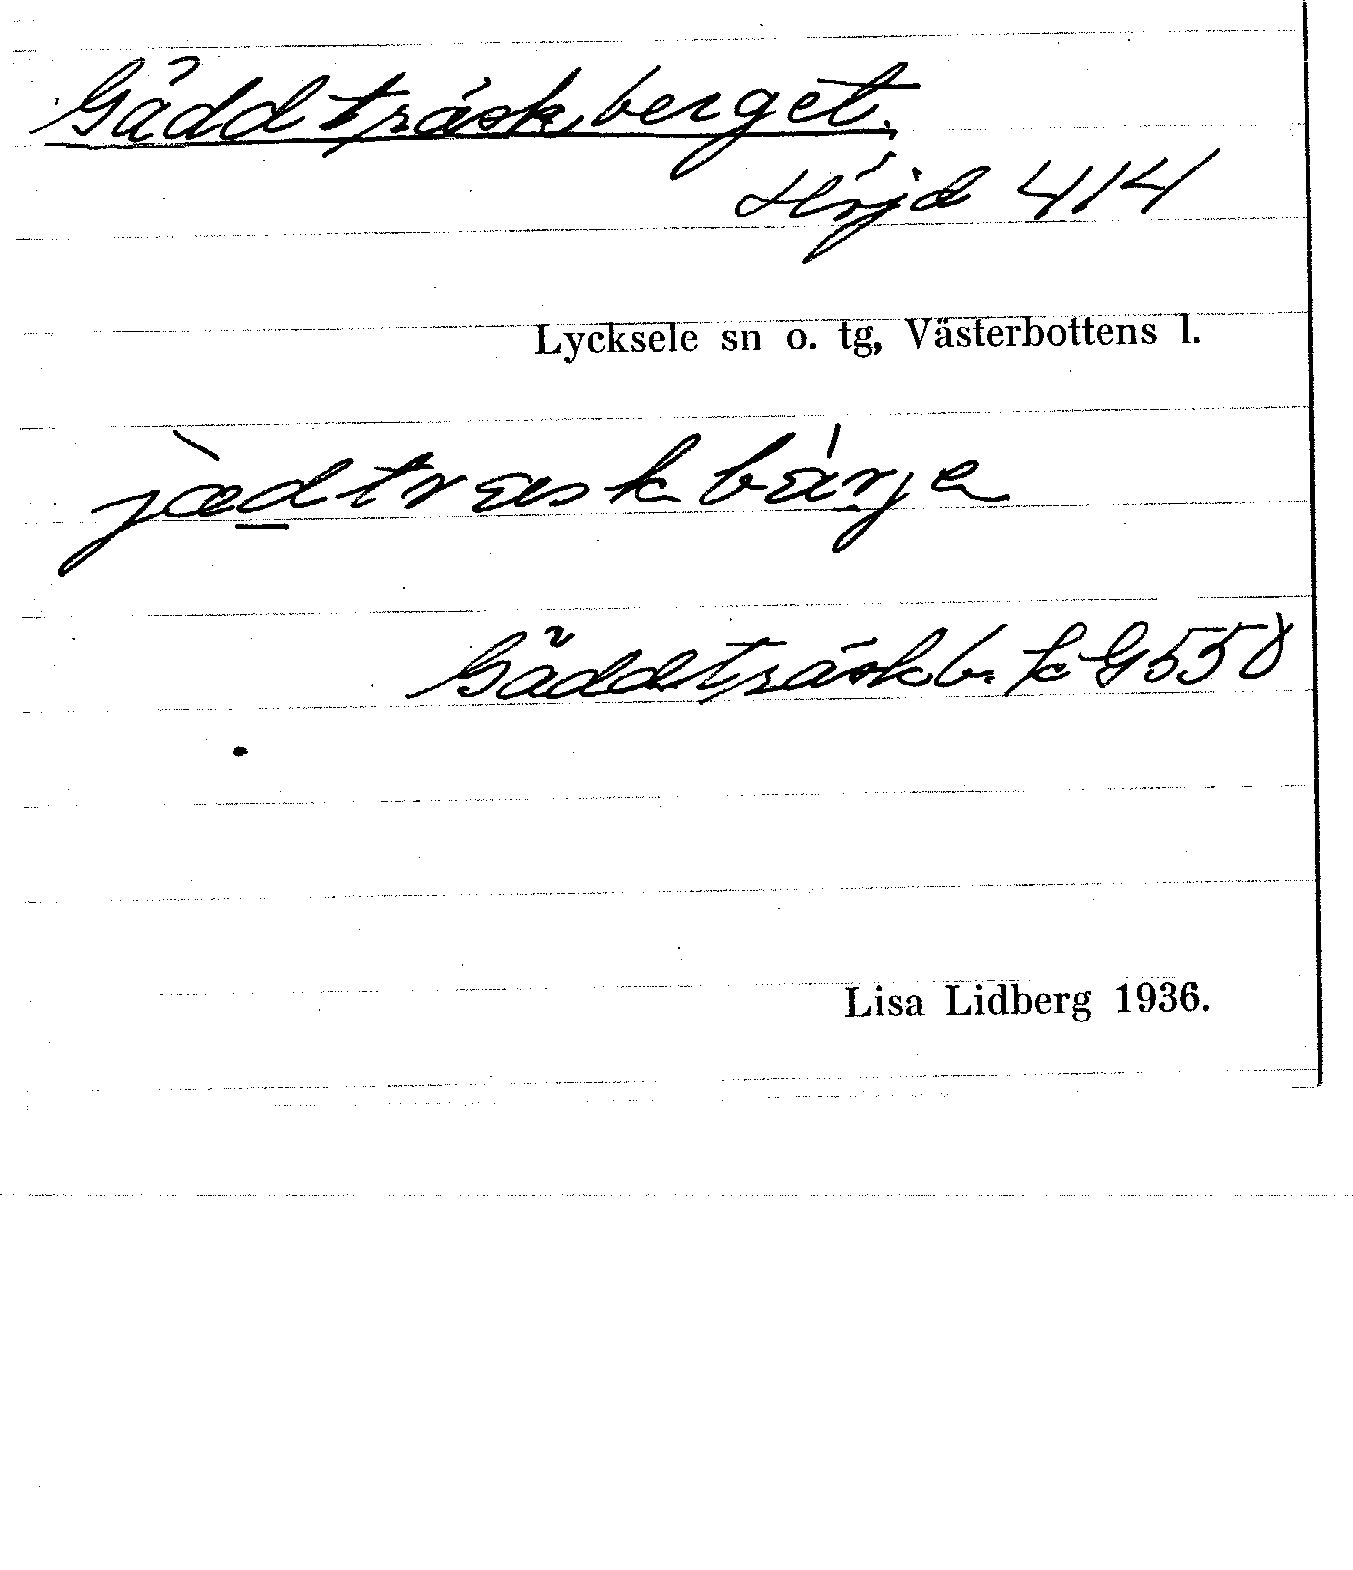 Gäddträskberget.
Höjd 414
Lycksele sn o. tg, Västerbottens l.
jæ̀dtræskbǽrje
Gäddträskb. k G 550
Lisa Lidberg 1936.